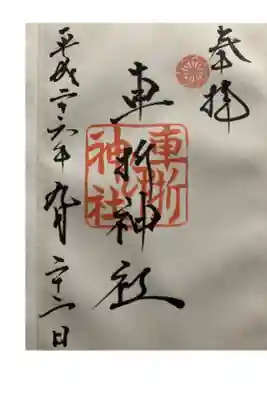 奉拝
車折神社
車折
神社
平成二十六年九月二十二日